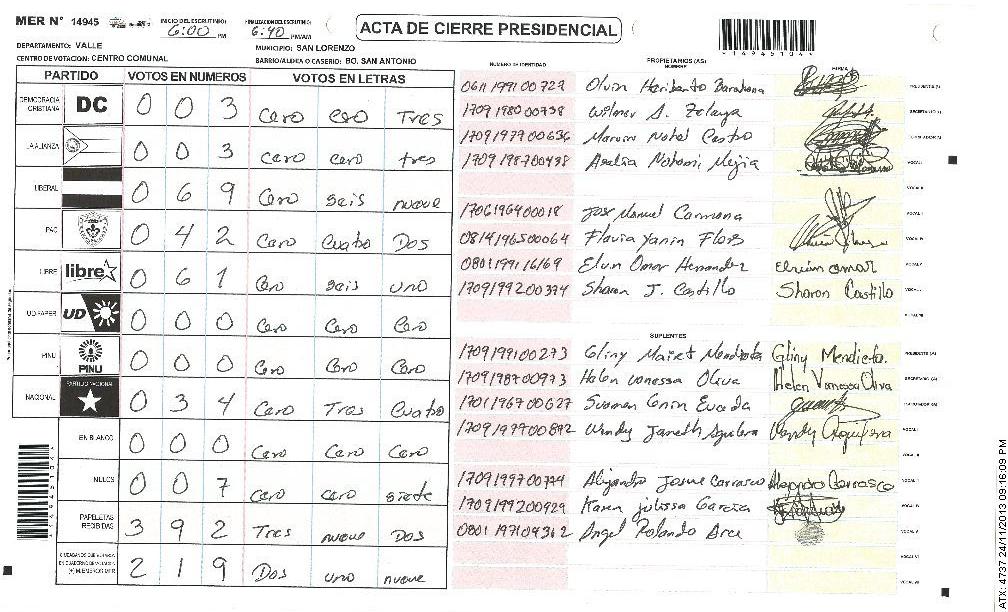 MER N° 14945
INICIO DEL ESCRUTINIO 6:00 PM
FINALIZACION DEL ESCRUTINIO 6:40 PM/AM
ACTA DE CIERRE PRESIDENCIAL
14945104
DEPARTAMENTO: VALLE
MUNICIPIO: SAN LORENZO
CENTRO DE VOTACION: CENTRO COMUNAL
BARRIO/ALDEA O CASERIO: BO. SAN ANTONIO
PARTIDO VOTOS EN NUMEROS VOTOS EN LETRAS
DEMOCRACIA CRISTIANA DC 0 0 3 Cero cero Tres
LA ALIANZA 0 0 3 cero cero tres
LIBERAL 0 6 9 Cero seis nueve
PAC 0 4 2 Cero Cuatro Dos
LIBRE libre 0 6 1 Cero seis uno
UD FAPER UD 0 0 0 Cero Cero Cero
PINU PINU 0 0 0 Cero Cero Cero
NACIONAL PARTIDO NACIONAL 0 3 4 Cero Tres Cuatro
EN BLANCO 0 0 0 Cero Cero Cero
NULOS 0 0 7 cero cero siete
PAPELETAS RECIBIDAS 3 9 2 Tres nueve Dos
CIUDADANOS QUE VOTARON EN CUADERNO DE VOTACION (+) MIEMBROS MER 2 1 9 Dos uno nueve
NUMERO DE IDENTIDAD
PROPIETARIOS (AS)
NOMBRE
FIRMA
0611199100729 Olvin Heriberto Barahona PRESIDENTE (A)
1709198000738 Wilmer A. Zelaya SECRETARIO (A)
1709197900636 Marvin Notal Castro
1709198700438 Mejia VOCAL I
VOCAL II
1706196400018 Jose Manuel Carmona
0814196500064 Flavia Yanin Flores VOCAL IV
0801199116169 Elvin Omar Hernandez Elvin omar VOCAL V
1709199200374 Sharon J. Castillo Sharon Castillo
SUPLENTES
1709199100273 Gliny Mairet Mendieta Gliny Mendieta. PRESIDENTE (A)
1709198700973 Helen vanessa Oliva Helen Vanessa Oliva SECRETARIO (A)
1701196700627
1709197700892 Wendy Janeth Aguilera Wendy Aguilera VOCAL I
VOCAL II
1709199700744 Alejandro Jasme Carrasco Alejandro Carrasco
1709199200929 Karen julissa Garcia VOCAL IV
0801197104362 Angel Rolando Arce VOCAL V
VOCAL VI
VOCAL VII
14945104
ATX: 4737 24/11/2013 09:16:09 PM